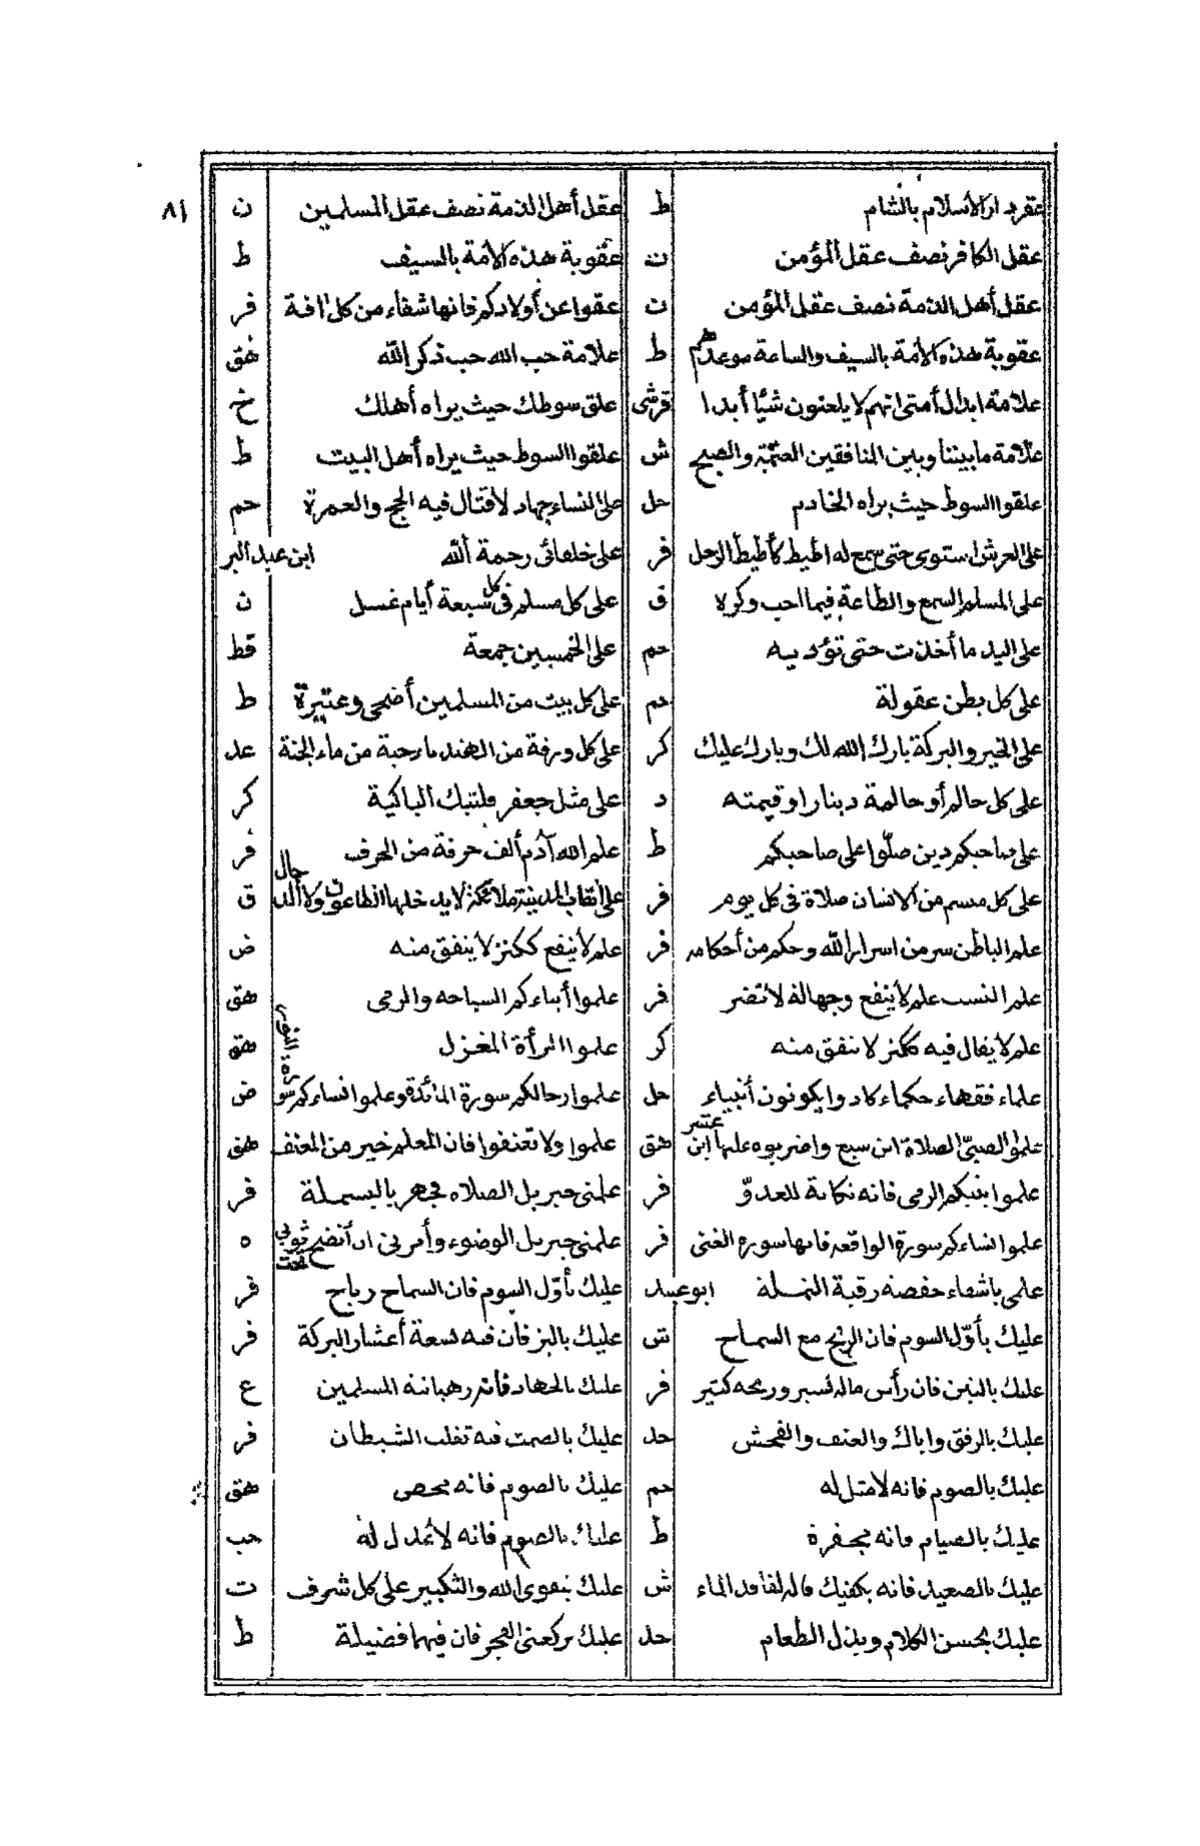 ٨١
عقر دار الاسلام بالشام ط
عقل الكافر نصف عقل المؤمن ن
عقل أهل الذمة نصف عقل المؤمن ن
عقوبة هذه الامة بالسيف والساعة موعدهم ط
علامة ابدال أمتى انهم لا يلعنون شيئا أبدا قرشى
علامة ما بيننا وبين المنافقين العتمة والصبح ش
علقوا السوط حيث يراه الخادم حل
على العرش استوى حتى سمع له اطيط كأطيط الرحل فر
على المسلم السمع والطاعة فيما احب وكره ق
على اليد ما أخذت حتى تؤديه حم
على كل بطن عقولة حم
على الخير والبركة بارك الله لك وبارك عليك كر
على كل حالم أو حالمة دينار او قيمته د
على صاحبكم دين صلّوا على صاحبكم ط
على كل مسم من الانسان صلاة فى كل يوم فر
علم الباطن سر من اسرار الله وحكم من أحكامه فر
علم النسب علم لا ينفع وجهالة لا تضر فر
علم لا يقال فيه ككنز لا ينفق منه كر
علماء فقهاء حكماء كادوا يكونون أنبياء حل
علموا الصبىّ الصلاة ابن سبع واضربوه عليها ابن عشر هق
علموا بنيكم الرمى فانه نكاية للعدوّ فر
علموا نساءكم سورة الواقعه فانها سورة الغنى فر
علمى يا شفاء حفصه رقية النملة ابو عبيد
عليك بأوّل السوم فان الربح مع السماح ش
عليك بالبز فان رأس ماله يسير وربحه كثير فر
عليك بالرفق واياك والعنف والفحش حد
عليك بالصوم فانه لا مثل له حم
عليك بالصيام فانه مجفرة ط
عليك بالصعيد فانه يكفيك قاله لفاقد الماء ش
عليك بحسن الكلام وبذل الطعام حد
عقل أهل الذمة نصف عقل المسلمين ن
عقوبة هذه الامة بالسيف ط
عقوا عن أولادكم فانها شفاء من كل افة فر
علامة حب الله حب ذكر الله هق
علق سوطك حيث يراه أهلك خ
علقوا السوط حيث يراه أهل البيت ط
على النساء جهاد لا قتال فيه الحج والعمرة حم
على خلفائى رحمة الله ابن عبد البر
على كل مسلم فى كل سبعة أيام غسل ن
على الخمسين جمعة قط
على كل بيت من المسلمين أضحى وعتيرة ط
على كل ورقة من الهندبا حبة من ماء الجنة عد
على مثل جعفر فلتبك الباكية كر
علم الله آدم ألف حرفة من الحرف فر
على أنقاب المدينة ملائكة لا يدخلها الطاعون ولا الدجال ق
علم لا ينفع ككنز لا ينفق منه ض
علموا أبناءكم السباحه والرمى هق
علموا المرأة المغزل هق
علموا رجالكم سورة المائدة وعلموا نساءكم سورة النور ض
علموا ولا تعنفوا فان المعلم خير من المعنف هق
علمنى جبريل الصلاه فجهر بالبسملة فر
علمنى جبريل الوضوء وأمرنى ان أنضح تحت ثوبى ه
عليك بأوّل السوم فان السماح رباح فر
عليك بالبز فان فيه تسعة أعشار البركة فر
عليك بالجهاد فانه رهبانية المسلمين ع
عليك بالصمت فبه تغلب الشيطان فر
عليك بالصوم فانه محصى هق
عليك بالصوم فانه لا عدل له حب
عليك بتقوى الله والتكبير على كل شرف ت
عليك بركعتى الفجر فان فيهما فضيلة ط